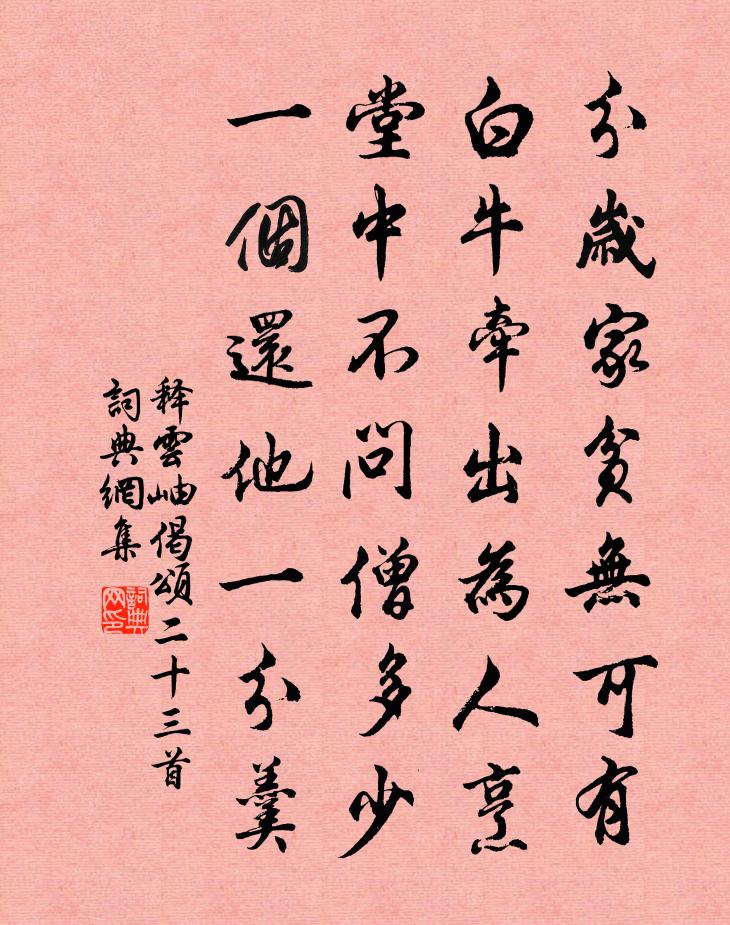 分歲家貧無可有
白牛牽出為人烹
堂中不問僧多少
一個還他一分羹
释雲岫偈頌二十三首
詞典網集
詞典网印